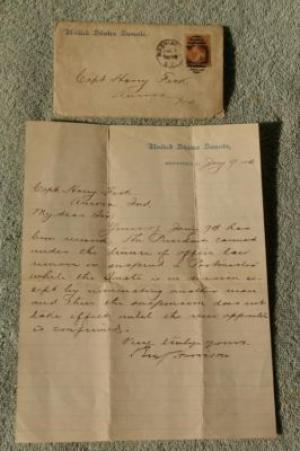 United States Senate.
Capt Henry Fisk
Aurora
Ind
United States Senate,
Jany 9
Capt Henry Fisk
Aurora Ind.
My dear Sir:
Yours of Jany 7th has
been received. The President cannot
under the tenure of office law
remove or suspend a Postmaster
while the Senate is in session ex-
cept by nominating another man
and then the suspension does not
take effect until the new appointee
is confirmed.
Very truly yours
Benj Harrison